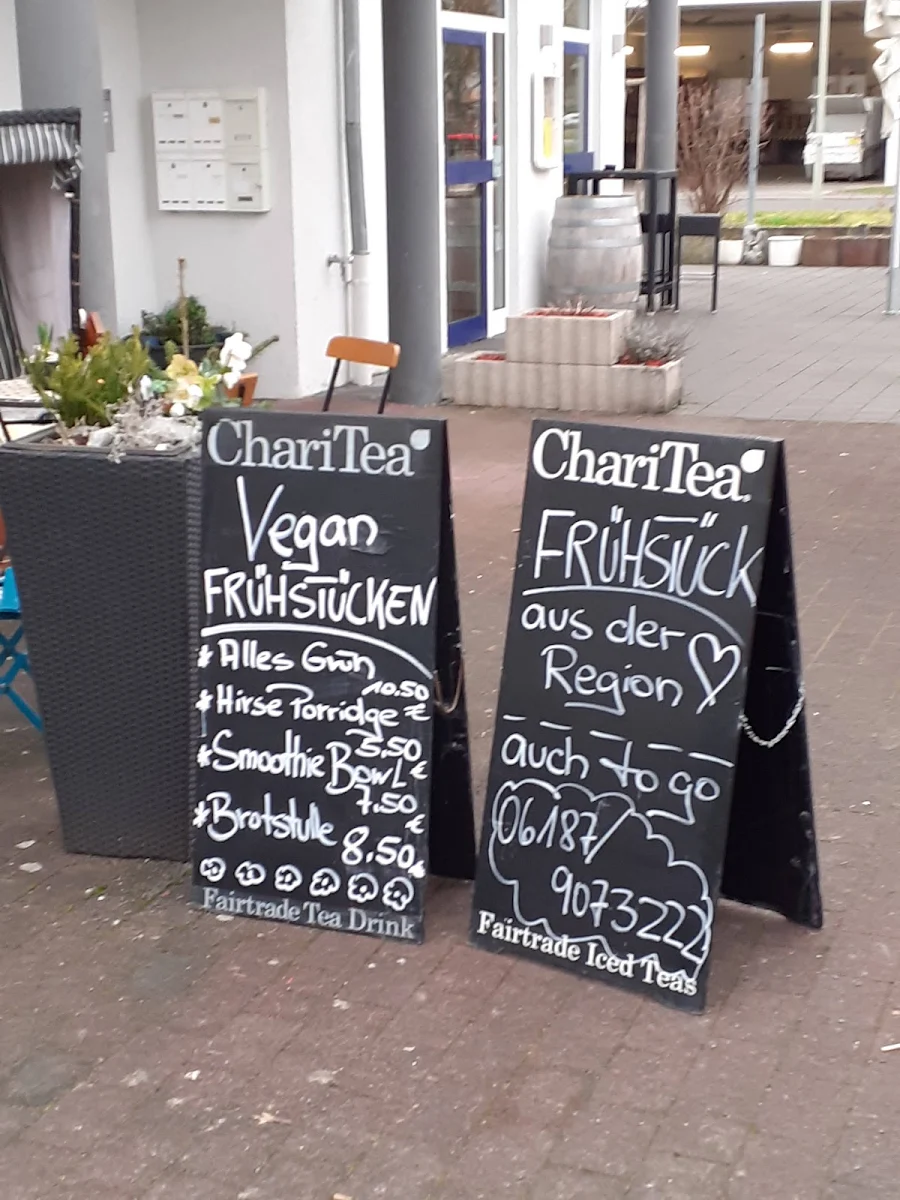 ChariTea
Vegan
FRÜHSTÜCKEN
* Alles Grün
10.50
* Hirse Porridge €
5,50
* Smoothie Bowl €
7.50
€
* Brotstulle 8,50€
Fairtrade Tea Drink
ChariTea
FRÜHSTÜCK
aus der
Region
auch to go
06187/
9073222
Fairtrade Iced Teas